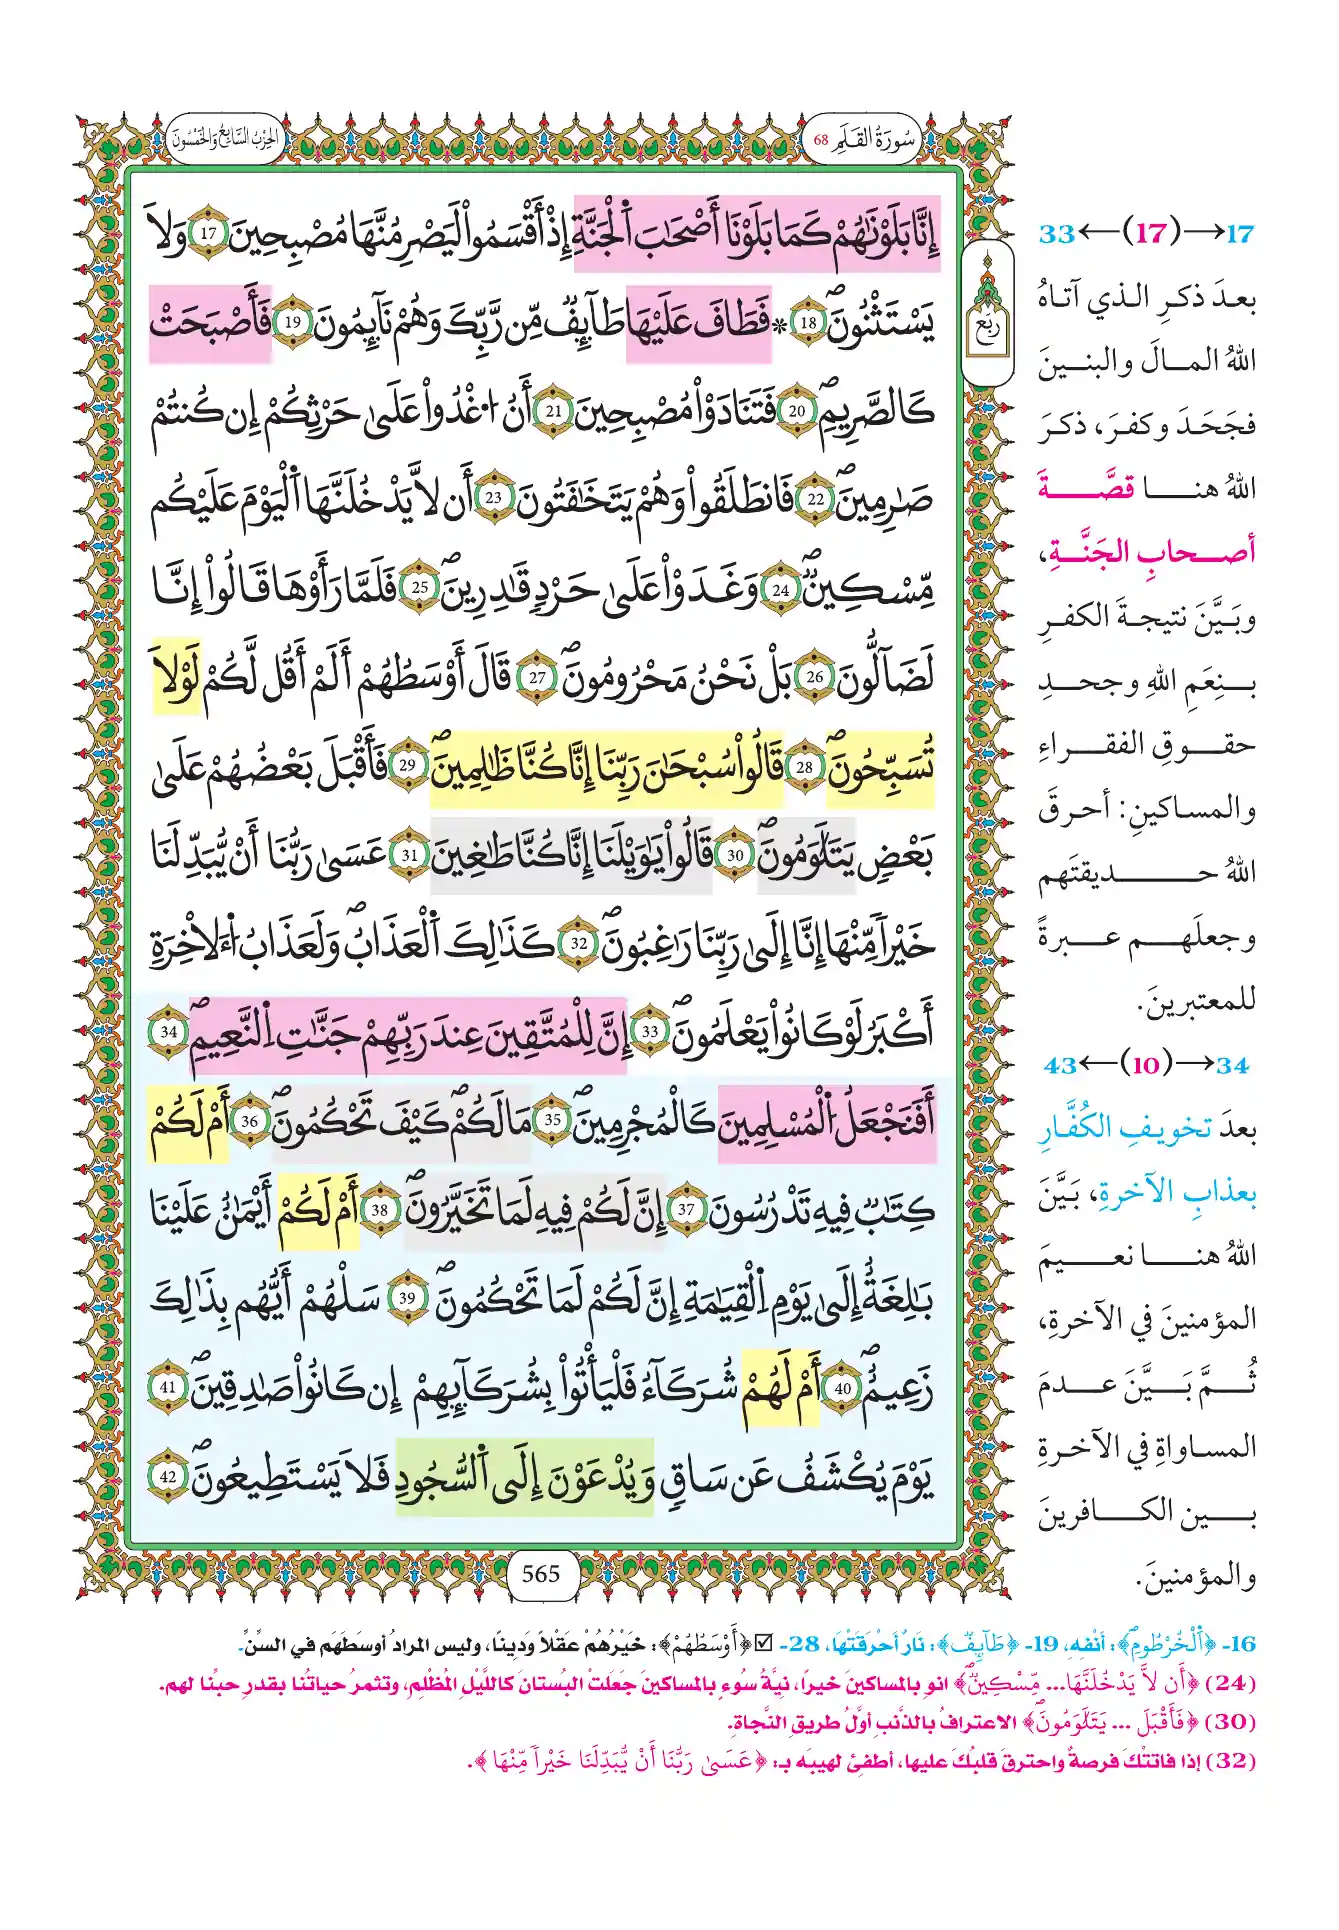 سُورَةُ القَلَمِ 68
الحِزْبُ السَّابِعُ وَالخَمْسُونَ
إِنَّا بَلَوْنَٰهُمْ كَمَا بَلَوْنَا أَصْحَٰبَ اَ۬لْجَنَّةِ إِذْ أَقْسَمُواْ لَيَصْرِمُنَّهَا مُصْبِحِينَ 17 وَلَا
يَسْتَثْنُونَۖ 18 * فَطَافَ عَلَيْهَا طَآئِفٞ مِّن رَّبِّكَ وَهُمْ نَآئِمُونَ 19 فَأَصْبَحَتْ
كَالصَّرِيمِۖ 20 فَتَنَادَوْاْ مُصْبِحِينَ 21 أَنُ اُ۟غْدُواْ عَلَىٰ حَرْثِكُمْ إِن كُنتُمْ
صَٰرِمِينَۖ 22 فَانطَلَقُواْ وَهُمْ يَتَخَٰفَتُونَ 23 أَن لَّا يَدْخُلَنَّهَا اَ۬لْيَوْمَ عَلَيْكُم
مِّسْكِينٞۖ 24 وَغَدَوْاْ عَلَىٰ حَرْدٖ قَٰدِرِينَۖ 25 فَلَمَّا رَأَوْهَا قَالُواْ إِنَّا
لَضَآلُّونَ 26 بَلْ نَحْنُ مَحْرُومُونَۖ 27 قَالَ أَوْسَطُهُمْ أَلَمْ أَقُل لَّكُمْ لَوْلَا
تُسَبِّحُونَۖ 28 قَالُواْ سُبْحَٰنَ رَبِّنَا إِنَّا كُنَّا ظَٰلِمِينَۖ 29 فَأَقْبَلَ بَعْضُهُمْ عَلَىٰ
بَعْضٖ يَتَلَٰوَمُونَۖ 30 قَالُواْ يَٰوَيْلَنَا إِنَّا كُنَّا طَٰغِينَ 31 عَسَىٰ رَبُّنَا أَنْ يُّبَدِّلَنَا
خَيْراٗ مِّنْهَا إِنَّا إِلَىٰ رَبِّنَا رَٰغِبُونَۖ 32 كَذَٰلِكَ اَ۬لْعَذَابُۖ وَلَعَذَابُ اُ۬لْأٓخِرَةِ
أَكْبَرُ لَوْ كَانُواْ يَعْلَمُونَۖ 33 إِنَّ لِلْمُتَّقِينَ عِندَ رَبِّهِمْ جَنَّٰتِ اِ۬لنَّعِيمِۖ 34
أَفَنَجْعَلُ اُ۬لْمُسْلِمِينَ كَالْمُجْرِمِينَۖ 35 مَا لَكُمْۖ كَيْفَ تَحْكُمُونَۖ 36 أَمْ لَكُمْ
كِتَٰبٞ فِيهِ تَدْرُسُونَ 37 إِنَّ لَكُمْ فِيهِ لَمَا تَخَيَّرُونَۖ 38 أَمْ لَكُمْ أَيْمَٰنٌ عَلَيْنَا
بَٰلِغَةٌ إِلَىٰ يَوْمِ اِ۬لْقِيَٰمَةِ إِنَّ لَكُمْ لَمَا تَحْكُمُونَۖ 39 سَلْهُمْ أَيُّهُم بِذَٰلِكَ
زَعِيمٌۖ 40 أَمْ لَهُمْ شُرَكَآءُ فَلْيَأْتُواْ بِشُرَكَآئِهِمْ إِن كَانُواْ صَٰدِقِينَۖ 41
يَوْمَ يُكْشَفُ عَن سَاقٖ وَيُدْعَوْنَ إِلَى اَ۬لسُّجُودِ فَلَا يَسْتَطِيعُونَۖ 42
رُبُع
565
17←(17)→33
بعدَ ذكرِ الذي آتاهُ
اللهُ المالَ والبنينَ
فجَحَدَ وكفرَ، ذكرَ
اللهُ هنا قصَّةَ
أصحابِ الجَنَّةِ،
وبَيَّنَ نتيجةَ الكفرِ
بنِعَمِ اللهِ وجحدِ
حقوقِ الفقراءِ
والمساكينِ: أحرقَ
اللهُ حديقتَهم
وجعلَهم عبرةً
للمعتبرينَ.
34←(10)→43
بعدَ تخويفِ الكُفَّارِ
بعذابِ الآخرةِ، بَيَّنَ
اللهُ هنا نعيمَ
المؤمنينَ في الآخرةِ،
ثُمَّ بَيَّنَ عدمَ
المساواةِ في الآخرةِ
بين الكافرينَ
والمؤمنينَ.
16- ﴿اَ۬لْخُرْطُومِۖ﴾: أنْفِهِ، 19- ﴿طَآئِفٞ﴾: نَارٌ أَحْرَقَتْهَا، 28- ☑﴿أَوْسَطُهُمْ﴾: خَيْرُهُمْ عَقْلاً وَدِينًا، وليس المرادُ أوسَطَهَم في السِّنِّ.
(24) ﴿أَن لَّا يَدْخُلَنَّهَا... مِّسْكِينٞۖ﴾ انوِ بالمساكينَ خيراً، نيَّةُ سُوءٍ بالمساكينَ جَعَلَتْ البُستانَ كاللَّيْلِ المُظْلِمِ، وتثمرُ حياتُنا بقدرِ حبِّنا لهم.
(30) ﴿فَأَقْبَلَ ... يَتَلَٰوَمُونَۖ﴾ الاعترافُ بالذَّنبِ أوَّلُ طريقِ النَّجاةِ.
(32) إذا فاتتْكَ فرصةٌ واحترقَ قلبُكَ عليها، أطفِئْ لهيبَه بـ: ﴿عَسَىٰ رَبُّنَا أَنْ يُّبَدِّلَنَا خَيْراٗ مِّنْهَا﴾.